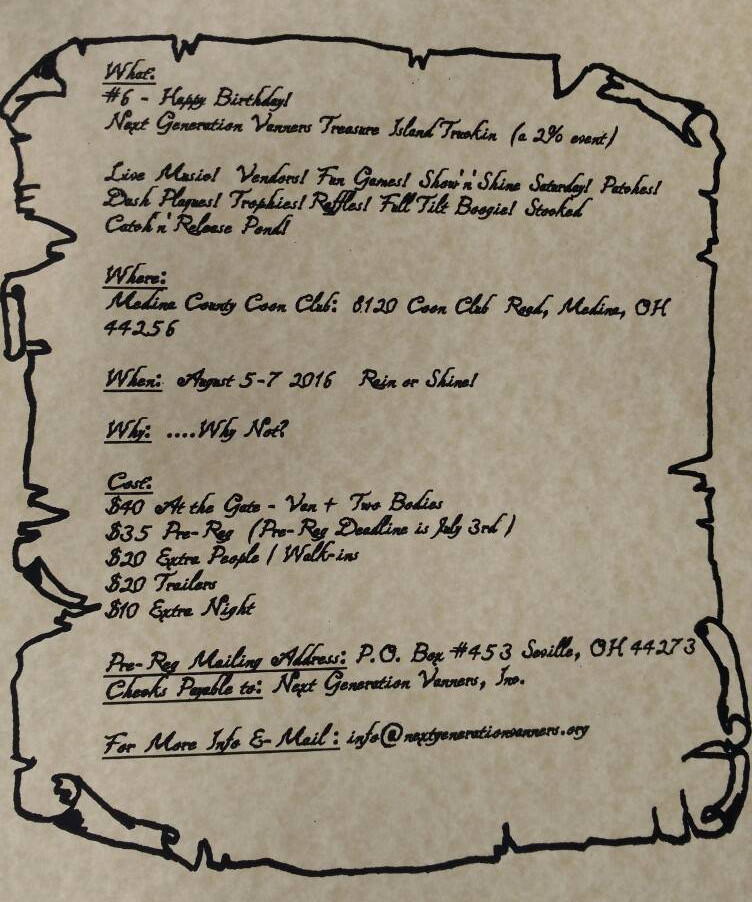 What:
#6 - Happy Birthday!
Next Generation Vanners Treasure Island Truckin (a 2% event)
Live Music! Vendors! Fun Games! Show'n'Shine Saturday! Patches!
Dash Plaques! Trophies! Raffles! Full Tilt Boogie! Stocked
Catch'n'Release Pond!
Where:
Medina County Coon Club: 8120 Coon Club Road, Medina, OH
44256
When: August 5-7 2016 Rain or Shine!
Why: ....Why Not?
Cost:
$40 At the Gate - Van + Two Bodies
$35 Pre-Reg (Pre-Reg Deadline is July 3rd )
$20 Extra People / Walk-ins
$20 Trailers
$10 Extra Night
Pre-Reg Mailing Address: P.O. Box #453 Seville, OH 44273
Checks Payable to: Next Generation Vanners, Inc.
For More Info E-Mail : info@nextgenerationvanners.org